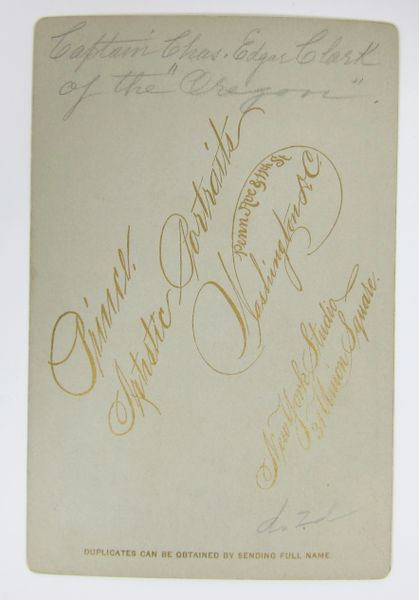 Captain Chas. Edgar Clark
of the "Oregon".
Prince.
Artistic Portraits
Penn Ave & 11th St
Washington D.C.
New York Studio
31 Union Square.
DUPLICATES CAN BE OBTAINED BY SENDING FULL NAME.